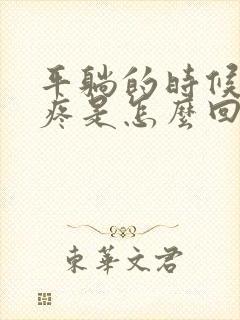 平躺的時候
疼是怎麼回
東華文君